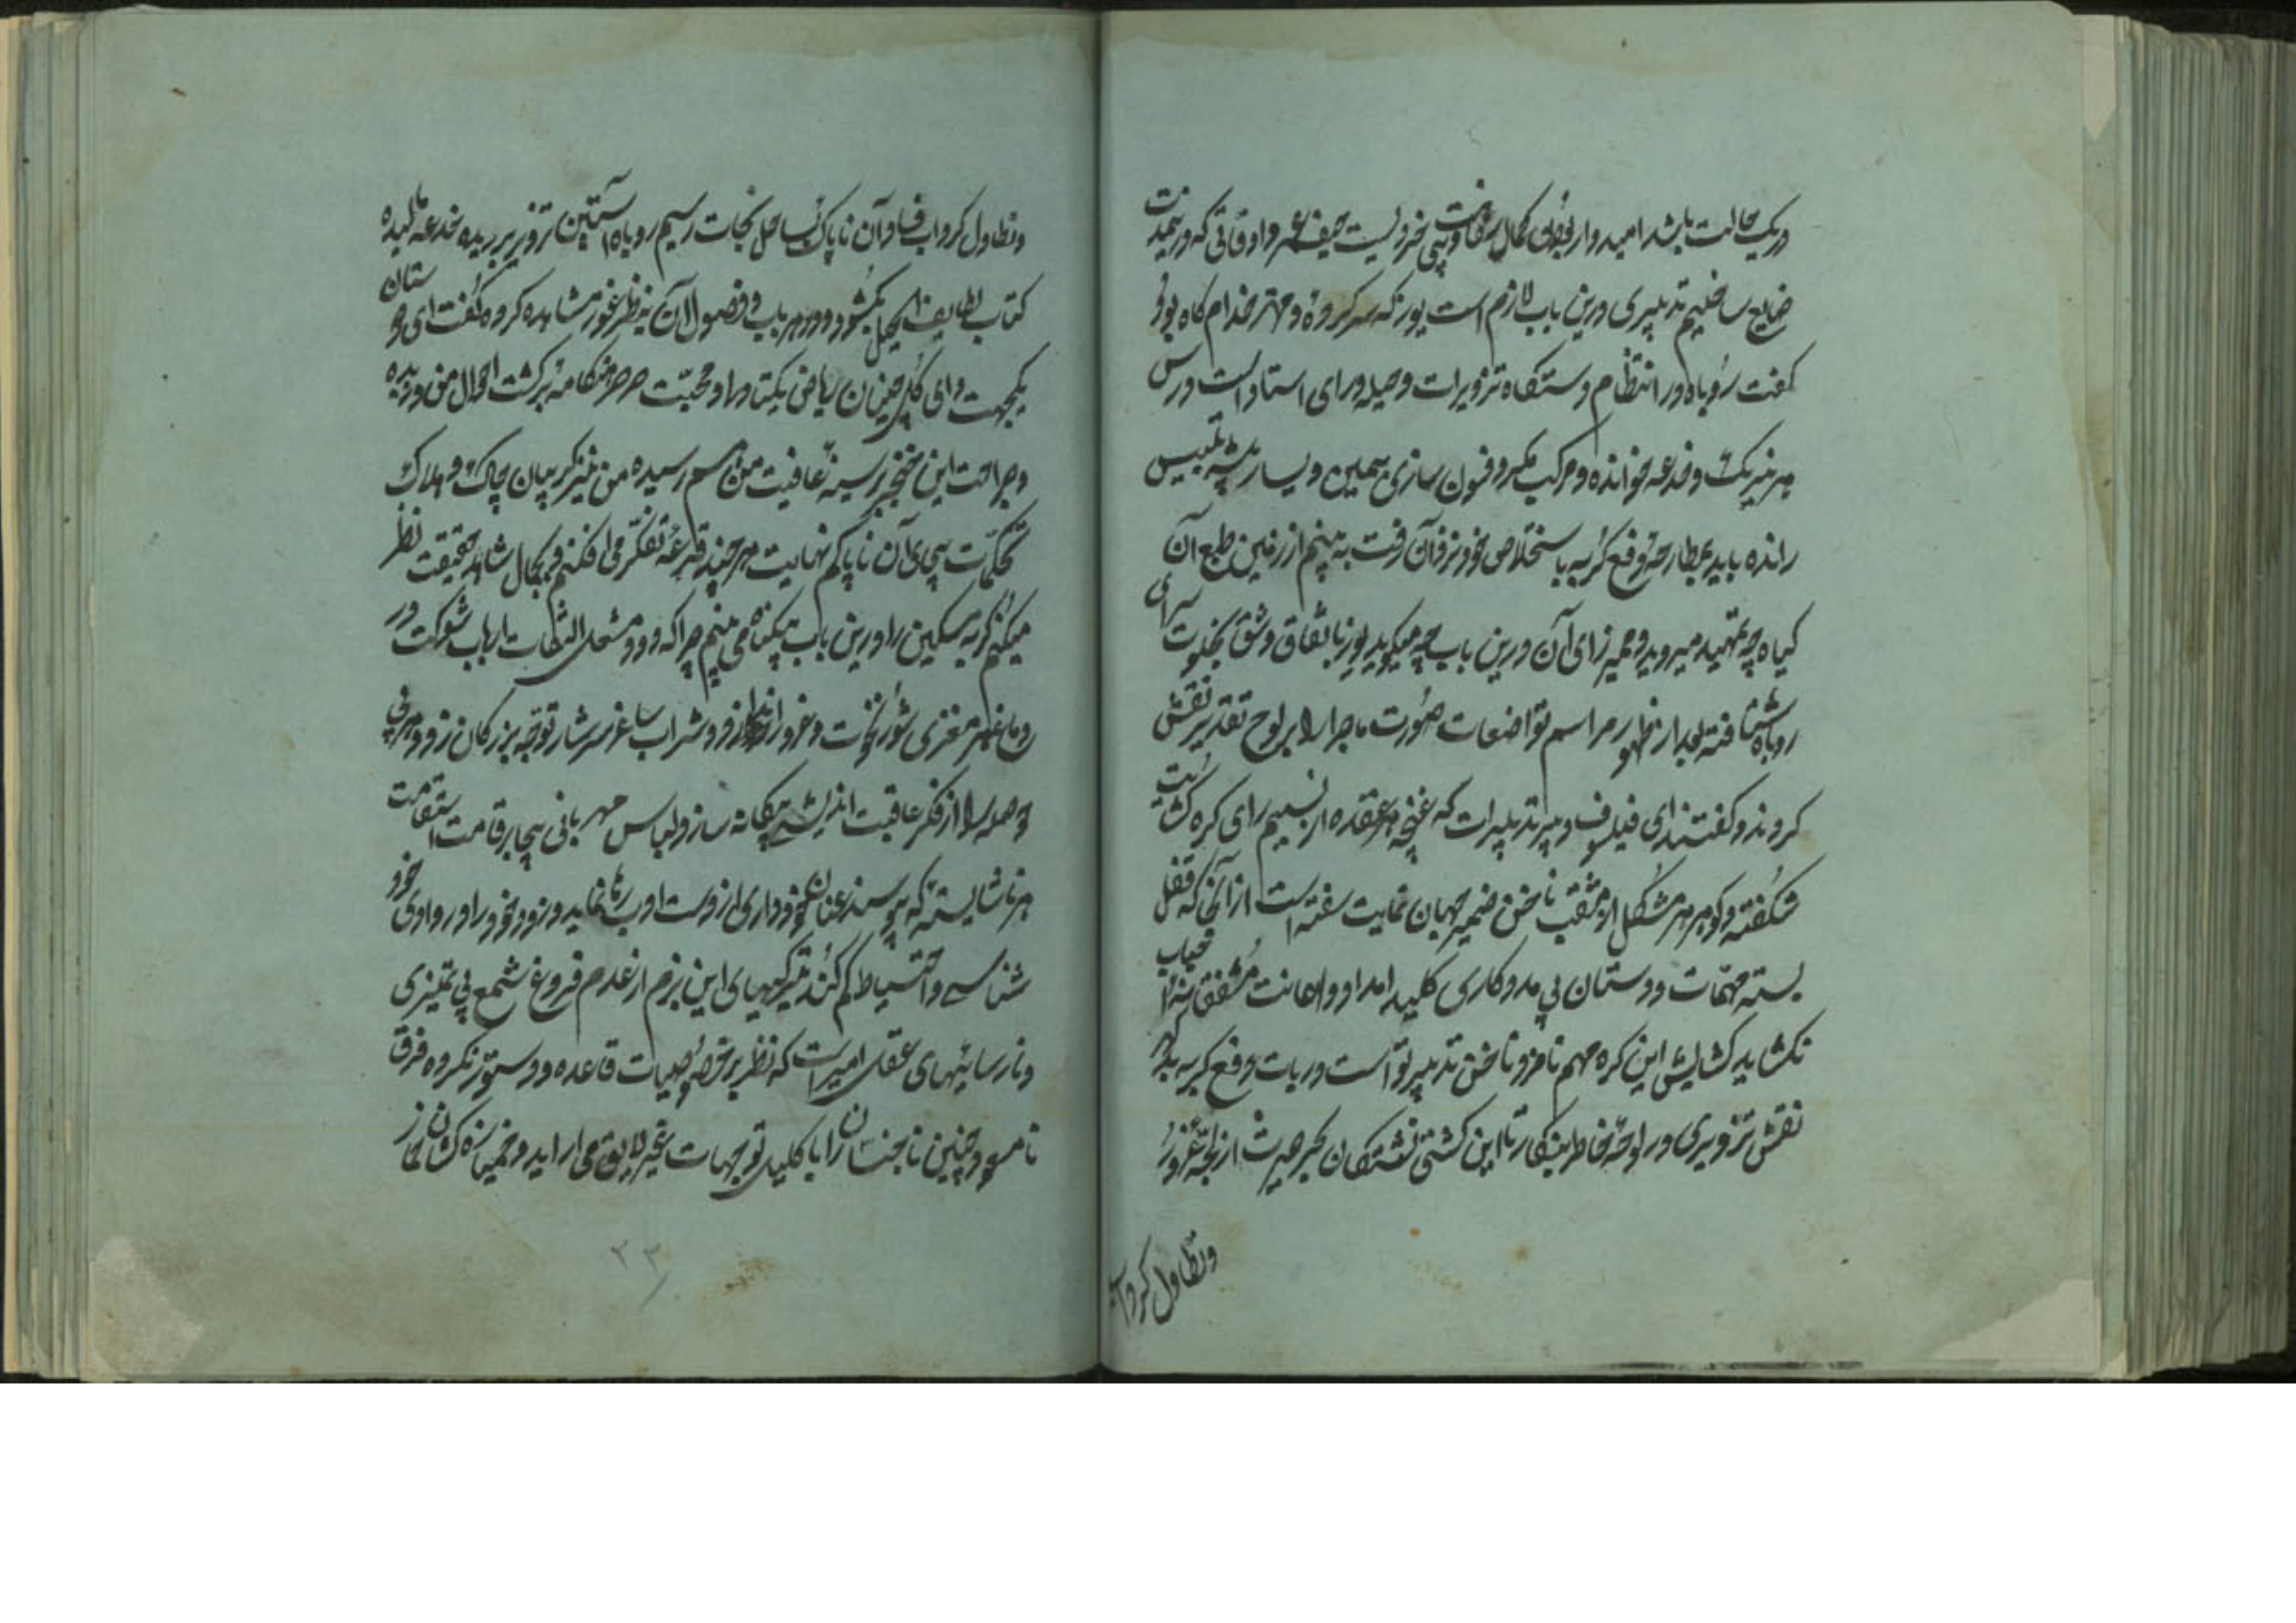 در یک حالت باشد امیدوار بودن کمال سفاهت و بی خردیست حیف عمر و اوقاتی که در خدمت
ضایع ساختیم تدبیری درین باب لازم است یوز که سر کرده و مهتر خدام کاه بود
گفت روباه در انتظام دستگاه تزویرات و حیله ورای استاد است درس
هر نیرنگ و خدعه خوانده و مرکب مکر و فسون سازی بیمین و یسار بیشه تلبیس
رانده باید بمطارحه دفع گربه باستخلاص خود نزد آن رفت به بینم از زمین طبع آن
گیاه چه تمهید میروید و ضمیر زای آن درین باب چه میگوید یوز باتفاق وشق بخلوت سرای
روباه شتافته بعد از ظهور مراسم تواضعات صورت ماجرا را بر لوح تقریر نقش
کردند و گفتند ای فیلسوف و پیر تدبیرات که غنچه هر عقده از نسیم رای گره گشایت
شکفته و گوهر هر مشکل از مثقب ناخن ضمیر جهان نمایت سفته است از آنجا که قفل
بسته مهمات دوستان بی مددکاری کلید امداد و اعانت مشفقانه
نکشاید گشایش این گره مهم نامزد ناخن تدبیر تو است در باب دفع گربه بد گهر
نقش تزویری در لوحه خاطر بنگار تا این کشتی نشستگان بحر حیرت از لجه غرور
و تطاول گرداب
و تطاول گرداب فساد آن ناپاک بساحل نجات رسیم روباه آستین تزویر بر دیده خدعه مالیده
کتاب لطایف الحیل بگشود و در هر باب و فصول آن بنظر غور مشاهده کرده گفت ای دوستان
یکجهت و ای گلچینان ریاض یکتا دلی و محبت صرصر هنگامه بر کشت احوال من وزیده
و جراحت این خنجر بر سینه عافیت من هم رسیده من نیز گریبان چاک و هلاک
تحکمات بیجای آن ناپاکم نهایت هر چند قرعه تفکر می افکنم و بجمال شاهد حقیقت نظر
میکنم گربه مسکین را درین باب بیگناه می بینم چرا که دود مشعل التفات ارباب شوکت در
دماغ هر مغزی شور نخوت و غرور اندازد و شراب ساغر سرشار توجه بزرگان زود هر بی
حوصله را از فکر عاقبت اندیشی بیگانه سازد لباس مهربانی بیجا بر قامت استقامت
هر ناشایسته که پوشند عنان خودداری از دست او رها نماید و زود خود را در وادی خود
شناسی و احتیاط گم کند تیرگیهای این بزم از عدم فروغ شمع بی تمیزی
و نارسائیهای عقل امیر است که نظر بر خصوصیات قاعده و دستور نکرده فرق
نامسعود چنین ناجنسان را با کلید توجهات غیر لایق می آراید و خمیازه کشان
۲۳